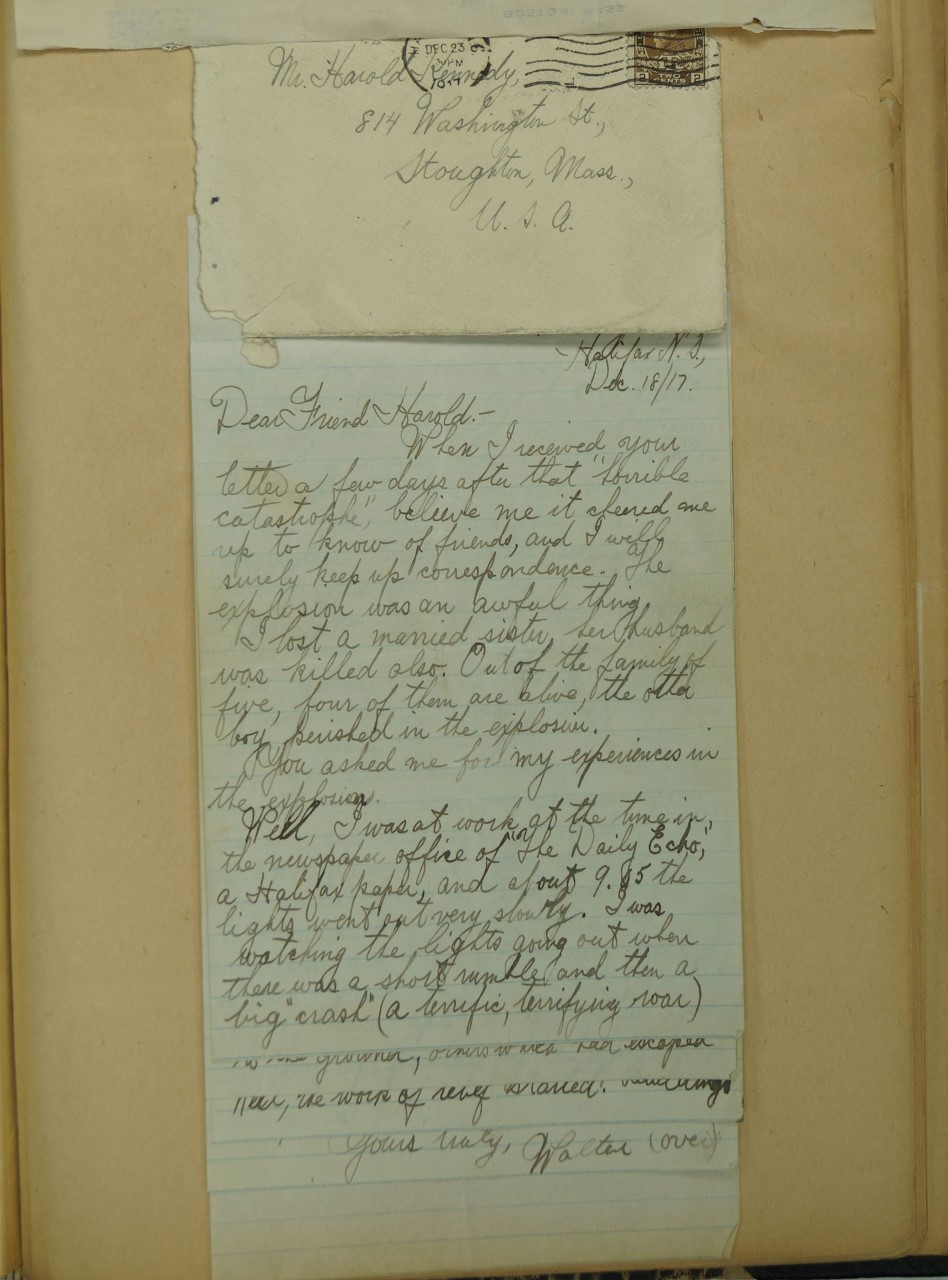 DEC 23
3 PM
1917
TWO
CENTS
Mr. Harold Kennedy,
814 Washington St.,
Stoughton, Mass.,
U. S. A.
Halifax N. S.,
Dec. 18/17.
Dear Friend Harold:-
When I received your
letter a few days after that "horrible
catastrophe", believe me it cheered me
up to know of friends, and I will
surely keep up correspondence. The
explosion was an awful thing
I lost a married sister, her husband
was killed also. Out of the family of
five, four of them are alive, the other
boy perished in the explosion.
You asked me for my experiences in
the explosion.
Well, I was at work at the time in,
the newspaper office of "The Daily Echo,"
a Halifax paper, and about 9.05 the
lights went out very slowly. I was
watching the lights going out when
there was a short rumble and then a
big "crash" (a terrific, terrifying roar)
to the ground, others which had escaped
the work of relief started.
Yours truly, Walter (over)